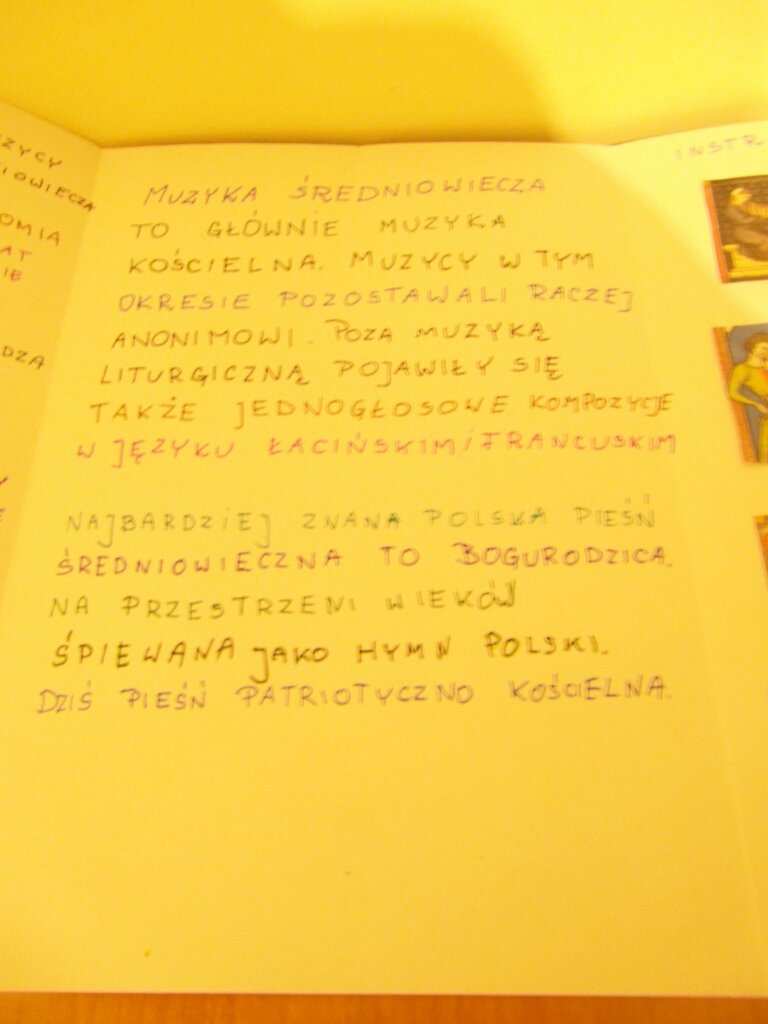 ZYCY
IOWIECZA
OMIA
AT
IE
DZĄ
Y
INSTR
MUZYKA ŚREDNIOWIECZA
TO GŁÓWNIE MUZYKA
KOŚCIELNA. MUZYCY W TYM
OKRESIE POZOSTAWALI RACZEJ
ANONIMOWI. POZA MUZYKĄ
LITURGICZNĄ POJAWIŁY SIĘ
TAKŻE JEDNOGŁOSOWE KOMPOZYCJE
W JĘZYKU ŁACIŃSKIM I FRANCUSKIM
NAJBARDZIEJ ZNANA POLSKA PIEŚŃ
ŚREDNIOWIECZNA TO BOGURODZICA.
NA PRZESTRZENI WIEKÓW
ŚPIEWANA JAKO HYMN POLSKI.
DZIŚ PIEŚŃ PATRIOTYCZNO KOŚCIELNA.